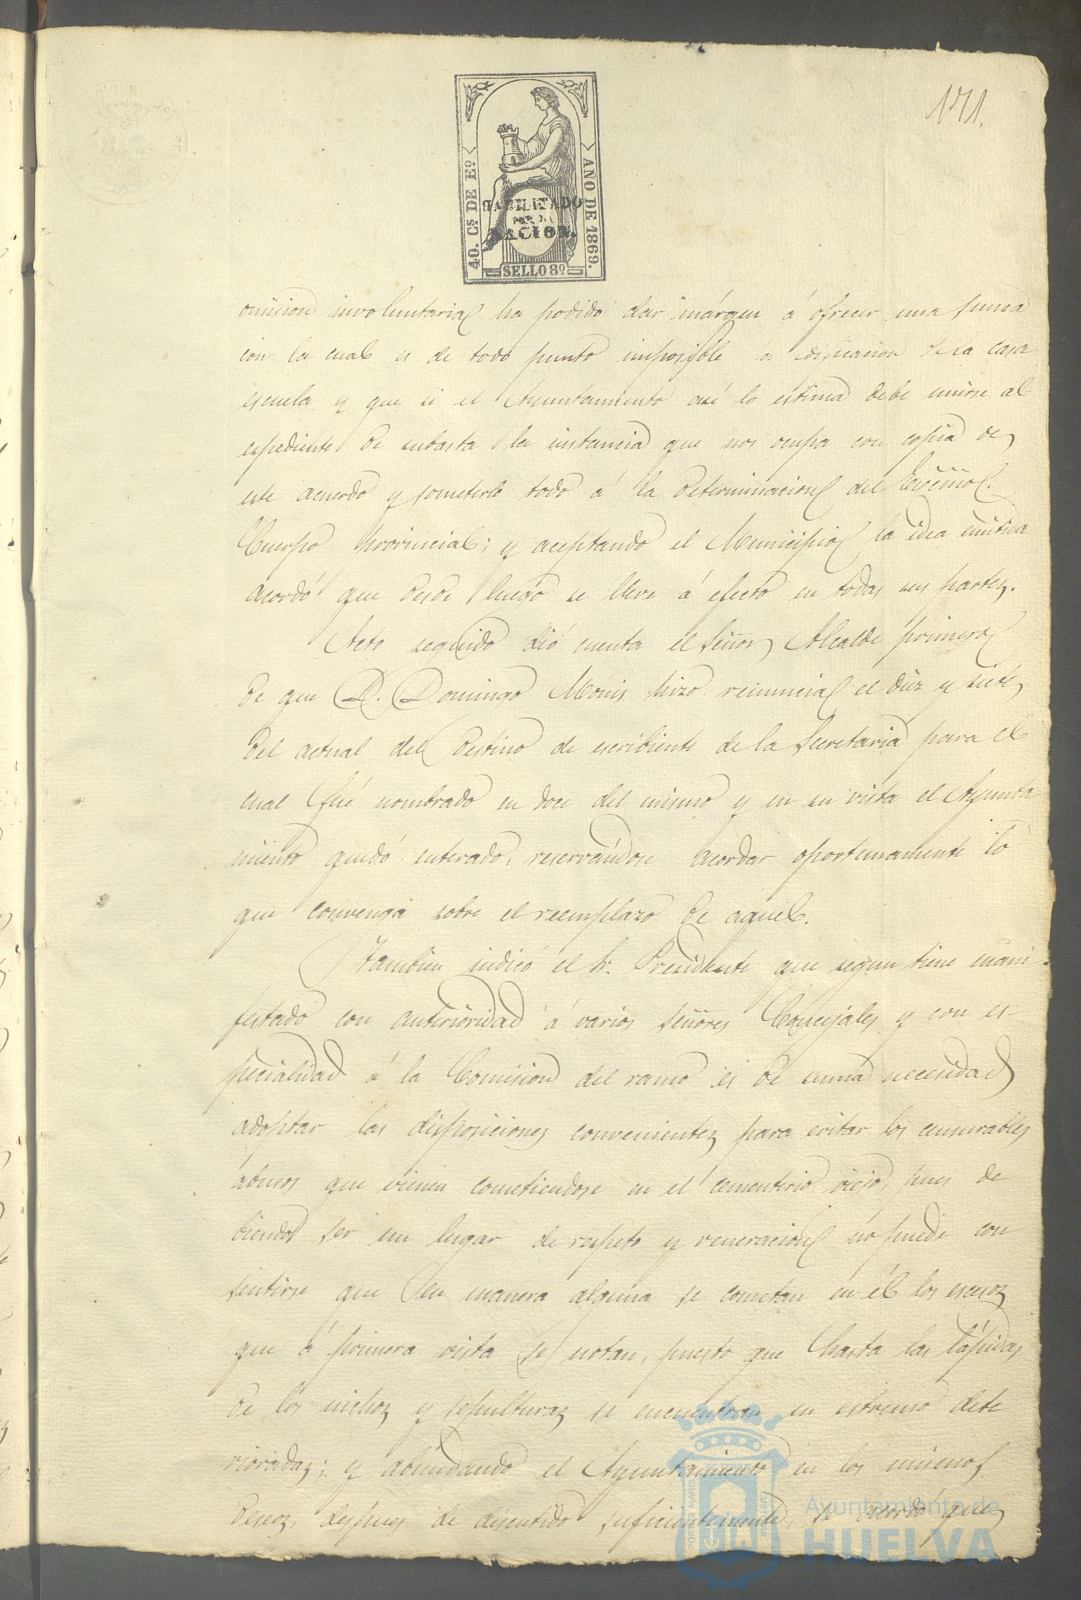 171.
40. Cs DE Eo
AÑO DE 1869.
HABILITADO
POR LA
NACION.
SELLO 8º
omision involuntaria ha podido dar márgen á ofrecer una suma
con la cual es de todo punto imposible la edificacion de la casa
escuela y que si el Ayuntamiento asi lo estima debe unirse al
espediente de subasta la instancia que nos ocupa con copia de
este acuerdo y someterlo todo á la determinacion del Escmo.
Cuerpo Provincial; y aceptando el Municipio la idea emitida
acordó que desde luego se lleve á efecto en todas sus partes.
Acto seguido dió cuenta el Señor Alcalde primero
de que D. Domingo Monis hizo renuncia el diez y siete
del actual del destino de escribiente de la Secretaria para el
cual fué nombrado en doce del mismo y en su vista el Ayunta
miento quedó enterado, reservándose acordar oportunamente lo
que convenga sobre el reemplazo de aquel.
Tambien indicó el Sr. Presidente que segun tiene mani-
festado con anterioridad á varios señores Concejales y con es-
pecialidad á la Comision del ramo es de suma necesidad
adoptar las disposiciones convenientes para evitar los censurables
abusos que vienen cometiendose en el cementerio viejo, pues de
biendo ser un lugar de respeto y veneracion no puede con
sentirse que en manera alguna se cometan en él los escesos
que á primera vista se notan, puesto que hasta las lápidas
de los nichos y sepulturas se encuentran en estremo dete
rioradas; y abundando el Ayuntamiento en los mismos
deseos, despues de discutido suficientemente, se acordó que
Ayuntamiento de
HUELVA